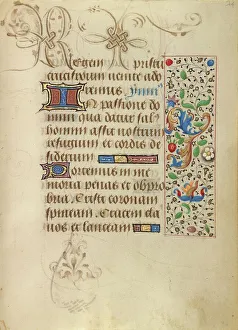 Regem xpristi
crucifixum venite ado
remus
In passione do
mini qua datur sal
hom asse nostrum
refugium et cordis de
siderium
Portemus in me
moria penas et obpro
bria Xpriste coronam
spineam Crucem cla
uos et lanceam